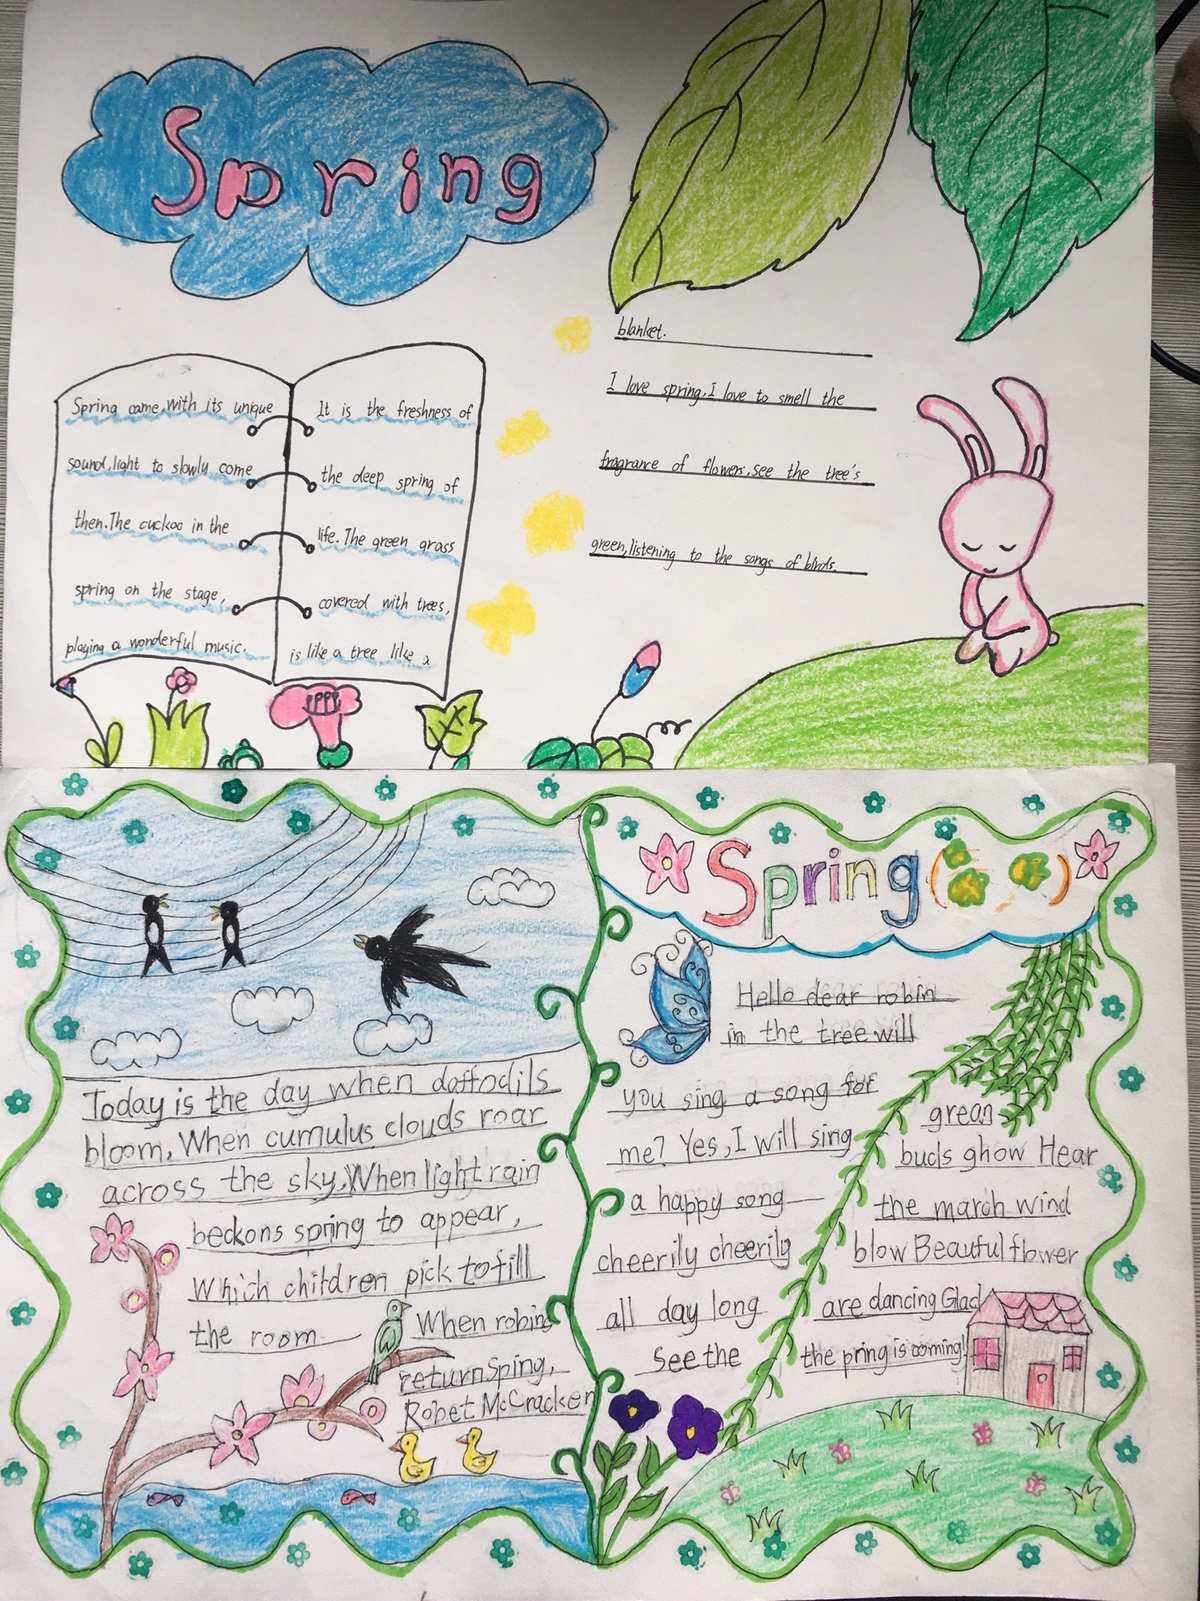 Spring
Spring came,with its unique
sound,light to slowly come
then.The cuckoo in the
spring on the stage,
playing a wonderful music.
It is the freshness of
the deep spring of
life. The green grass
covered with trees,
is like a tree like a
blanket.
I love spring.I love to smell the
fragrance of flowers.see the tree's
green,listening to the songs of birds.
Today is the day when daffodils
bloom, When cumulus clouds roar
across the sky,When light rain
beckons spring to appear,
Which children pick to fill
the room
When robins
return Spring,
Robet McCracken
Spring
Hello dear robin
in the tree will
you sing a song for
me? Yes, I will sing
a happy song
cheerily cheerily
all day long
See the
grean
buds ghow Hear
the march wind
blow Beautful flower
are dancing Glad
the pring is coming!